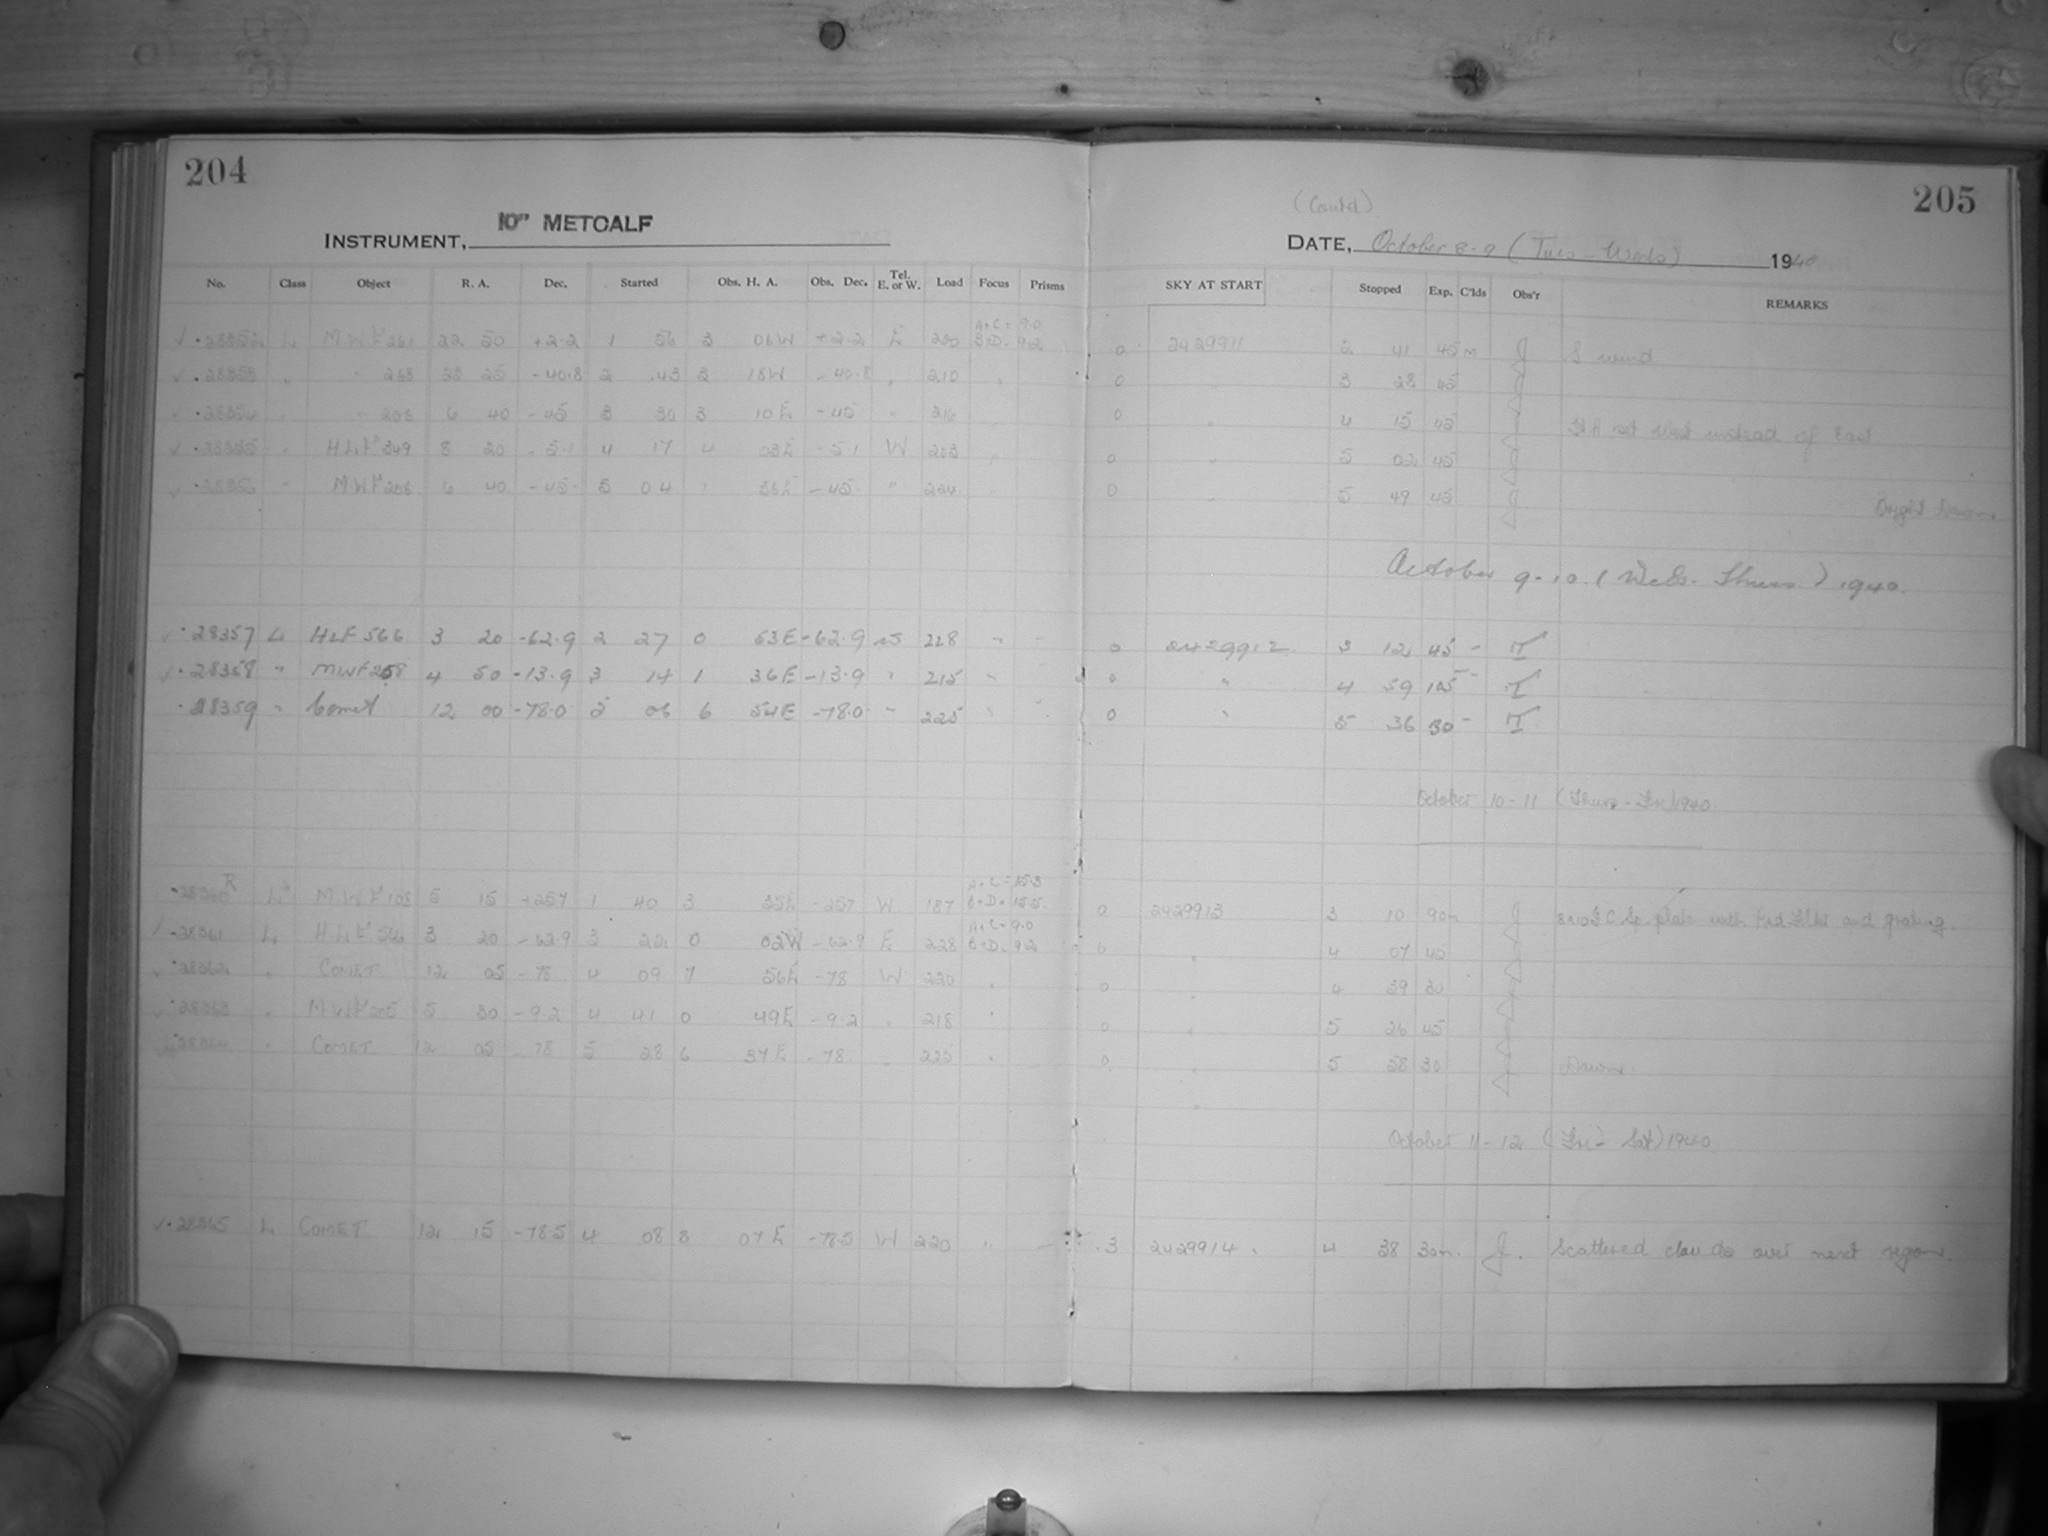 204
10" METCALF
INSTRUMENT,
(Contd)
205
DATE, October 8-9 (Tues - Weds) 1940
No. Class Object R. A. Dec. Started Obs. H. A. Obs. Dec. Tel. E. or W. Load Focus Prisms SKY AT START Stopped Exp. C'lds Obs'r REMARKS
28352 L MWF 261 22 50 +2.2 1 56 3 06W +2.2 E 200 A+C=9.0 B+D=9.2 0 2429911 2 41 45m J S wind
28353 " " 268 23 25 -40.8 2 43 3 18W -40.8 " 210 " 0 " 3 28 45 J
28354 " " 206 6 40 -45 3 30 3 10E -45 " 216 0 " 4 15 45 J HA set West instead of East
28355 " HLF 549 8 20 -5.1 4 17 4 03E -5.1 W 203 " 0 " 5 02 45 J
28356 " MWF 206 6 40 -45 5 04 1 36E -45 " 224 " 0 " 5 49 45 J Bright Dawn
October 9-10. (Weds- Thurs.) 1940.
28357 L HLF 566 3 20 -62.9 2 27 0 53E -62.9 W 228 " 0 2429912 3 12 45
28358 " MWF 258 4 50 -13.9 3 14 1 36E -13.9 " 215 " 0 " 4 59 105
28359 " Comet 12 00 -78.0 5 06 6 54E -78.0 " 225 " 0 " 5 36 30
October 10-11 (Thurs - Fri) 1940
28360 R MWF 108 5 15 +25.7 1 40 3 35E W 187 A+C=15.3 B+D=15.5 0 2429913 3 10 90m J plate with Red Filter and grating.
28361 L HLF 566 3 20 -62.9 3 22 0 02W -62.9 E 228 A+C=9.0 B+D=9.2 0 " 4 07 45 J
28362 " COMET 12 05 -78 4 09 7 56E -78 W 220 " 0 " 4 39 30 J
28363 " MWF 305 5 30 -9.2 4 41 0 49E -9.2 " 218 " 0 " 5 26 45 J
28364 " COMET 12 05 -78 5 28 6 37E -78 " 225 " 0 " 5 58 30 J Dawn
October 11-12 (Fri - Sat) 1940
28365 L COMET 12 15 -78.5 4 08 8 07E -78.5 W 220 " 3 2429914 4 38 30m. J. Scattered clouds over next region.